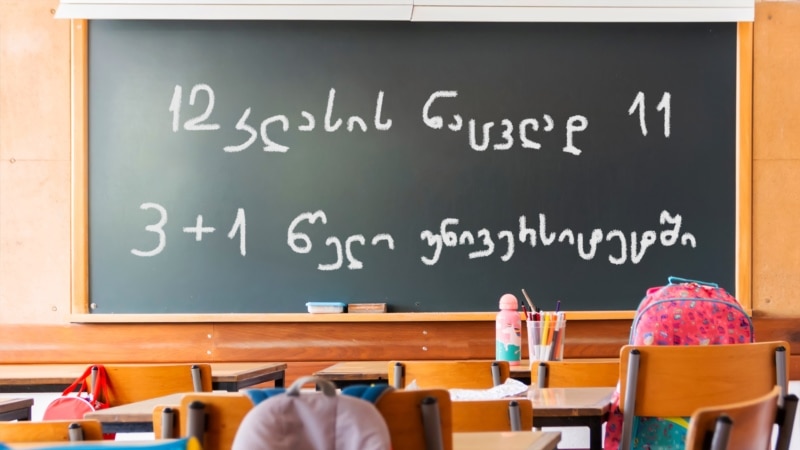 12 კლასის ნაცვლად 11
3+1 წელი უნივერსიტეტში